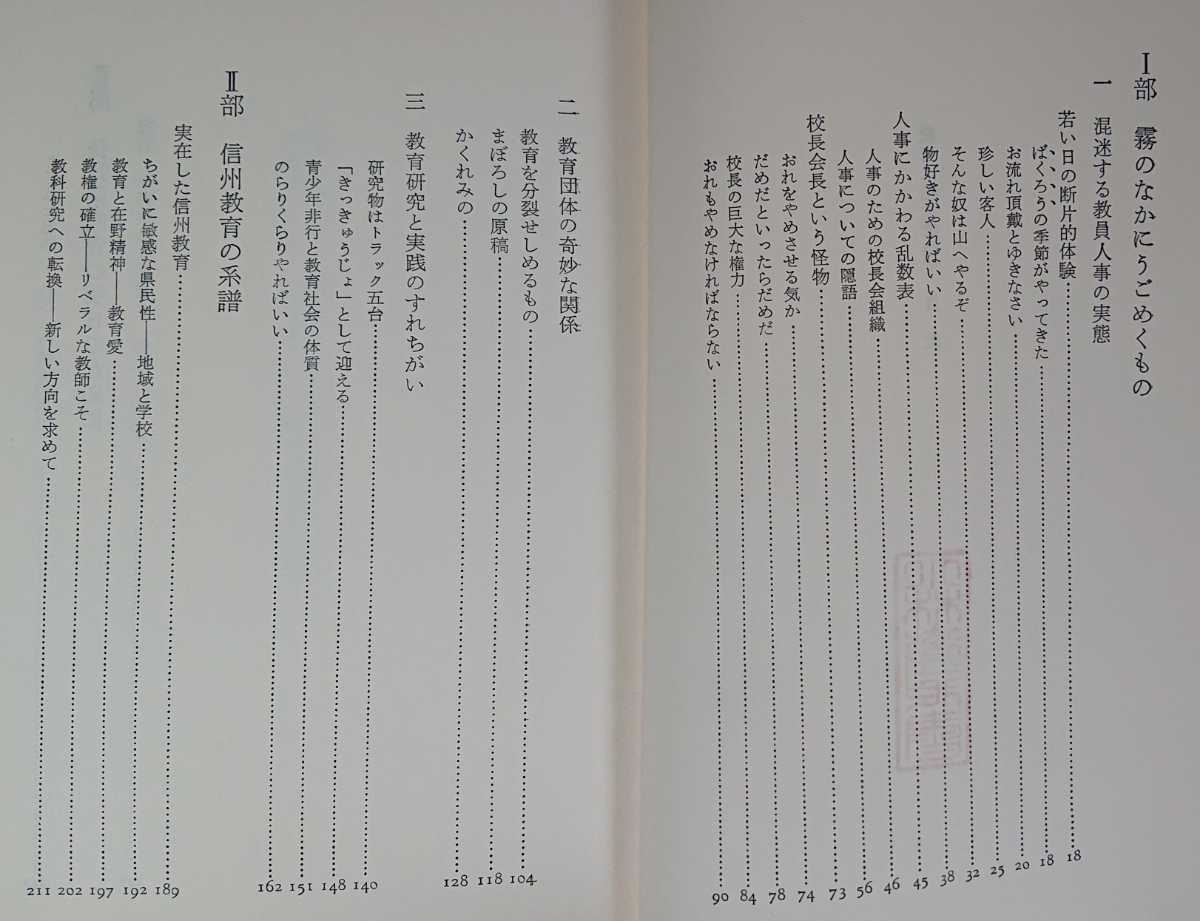 Ⅰ部 霧のなかにうごめくもの
一 混迷する教員人事の実態
若い日の断片的体験……18
ばくろうの季節がやってきた……18
お流れ頂戴とゆきなさい……20
珍しい客人……25
そんな奴は山へやるぞ……32
物好きがやればいい……38
人事にかかわる乱数表……45
人事のための校長会組織……46
人事についての隠語……56
校長会長という怪物……73
おれをやめさせる気か……74
だめだといったらだめだ……78
校長の巨大な権力……84
おれもやめなければならない……90
二 教育団体の奇妙な関係
教育を分裂せしめるもの……104
まぼろしの原稿……118
かくれみの……128
三 教育研究と実践のすれちがい
研究物はトラック五台……140
「きっきゅうじょ」として迎える……148
青少年非行と教育社会の体質……151
のらりくらりやればいい……162
Ⅱ部 信州教育の系譜
実在した信州教育……189
ちがいに敏感な県民性——地域と学校……192
教育と在野精神——教育愛……197
教権の確立——リベラルな教師こそ……202
教科研究への転換——新しい方向を求めて……211